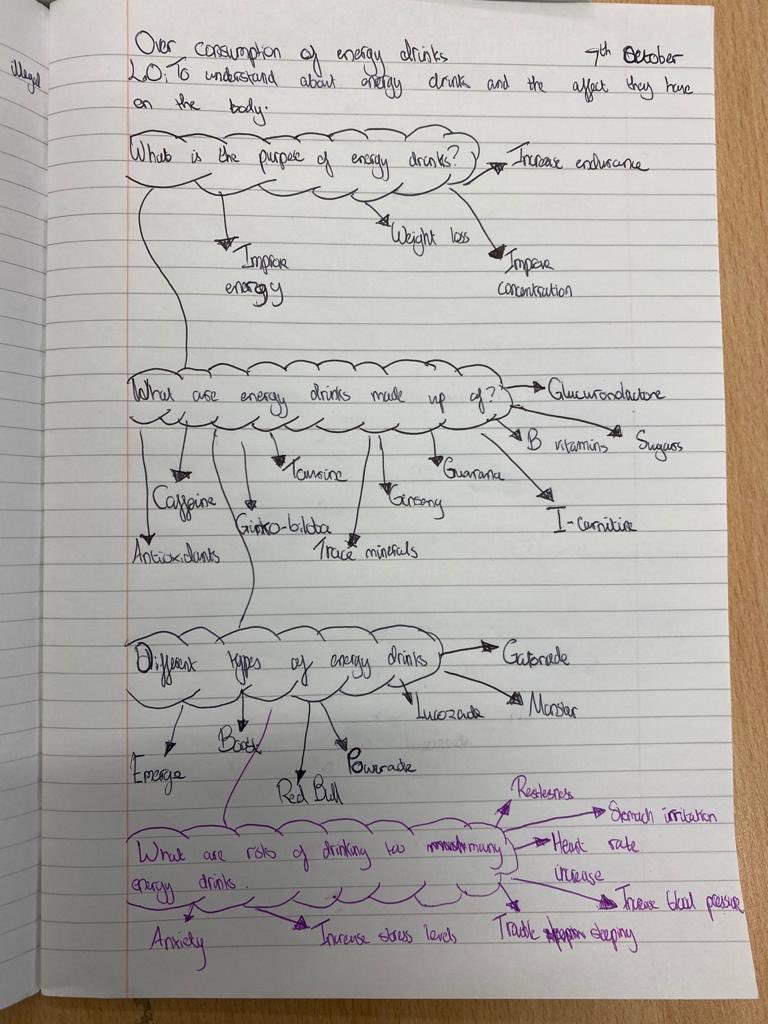 illegal
Over consumption of energy drinks 9th October
L.O: To understand about energy drinks and the affect they have
on the body.
What is the purpose of energy drinks?
Increase endurance
Weight loss
Improve
energy
Improve
concentration
What are energy drinks made up of?
Glucurondactore
B vitamins
Sugars
Taurine
Guarana
Caffeine
Ginseng
Ginko-biloba
I-carnitire
Antioxidants
Trace minerals
Different types of energy drinks
Gatorade
Lucozade
Monster
Boost
Emerge
Powerade
Red Bull
Restlesness
Stomach irritation
What are risks of drinking too many
energy drinks.
Heart rate
increase
Increase blood pressure
Anxiety
Increase stress levels
Trouble sleeping